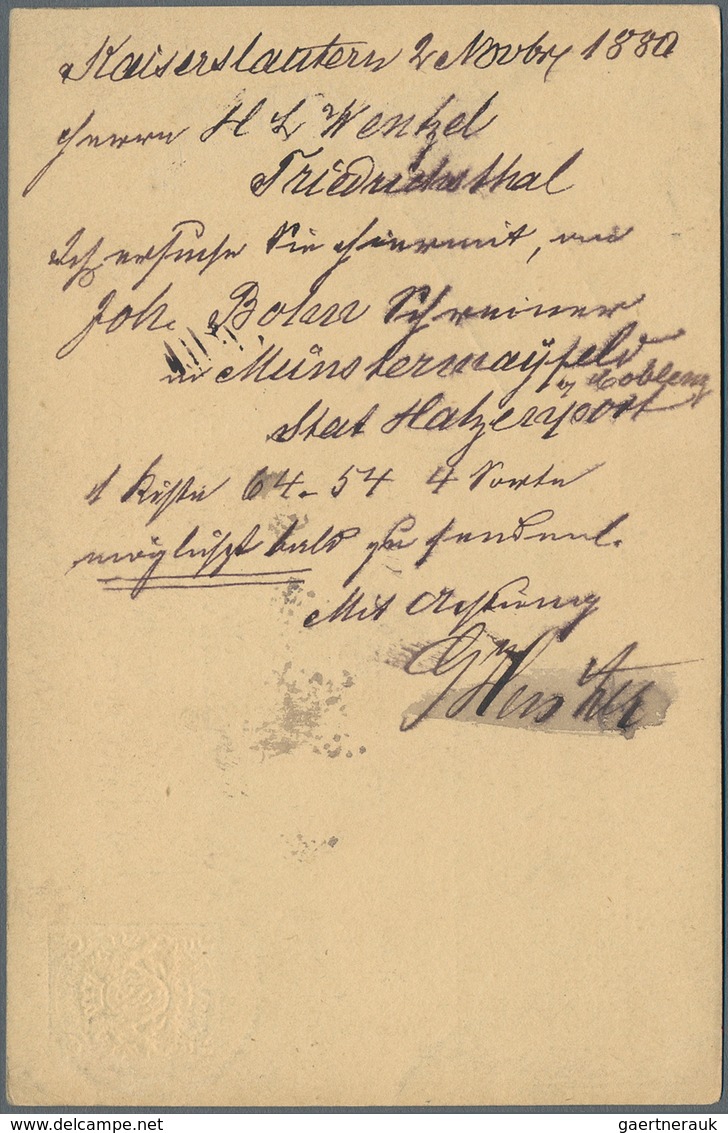 Kaiserslautern 2 Novbr 1880
Herrn H L Wentzel
Friedrichsthal
Ich ersuche Sie hiermit, an
Joh. Bohn Schreiner
in Münstermayfeld
b/ Coblenz
Stat Hatzenport
1 Kiste 64-54 4 Sorte
möglichst bald zu senden.
Mit Achtung
gaertnerauk